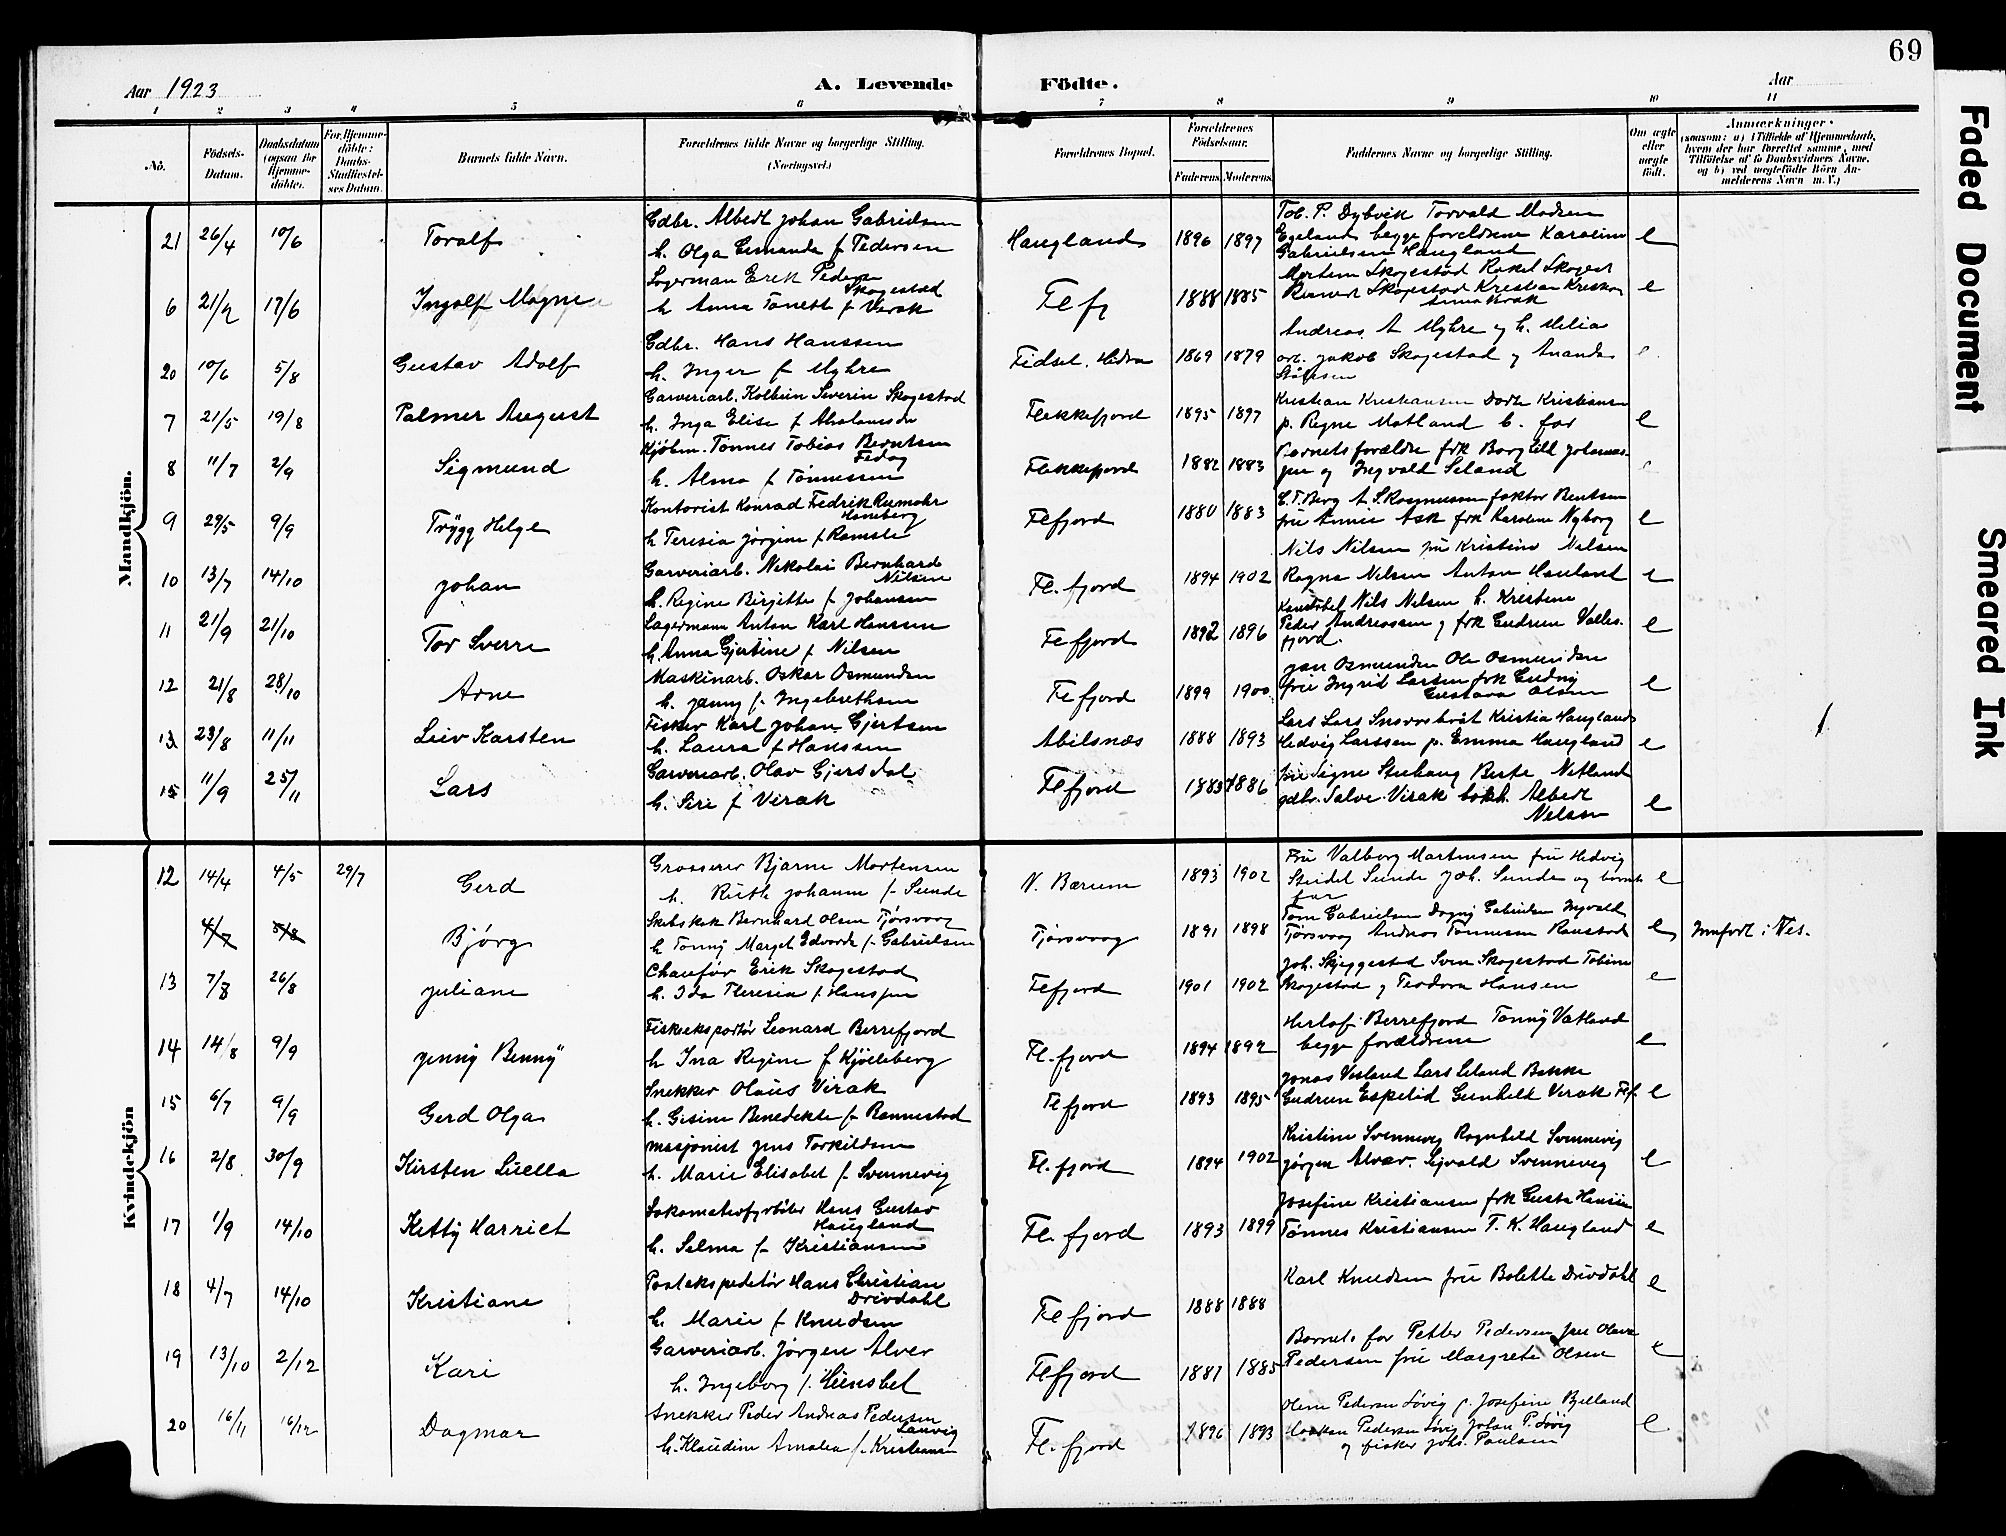 69
Aar 1923
A. Levende Födte.
Aar
1 2 3 4 5 6 7 8 9 10 11
No.
Födsels-Datum.
Daabsdatum (ogsaa for Hjemmedöbte).
For Hjemmedöbte: Daabs-Stadfæstelses Datum.
Barnets fulde Navn.
Forældrenes fulde Navne og borgerlige Stilling. (Næringsvei.)
Forældrenes Bopæl.
Forældrenes Födselsaar.
Faderens Moderens
Faddernes Navne og borgerlige Stilling.
Om ægte eller uægte födt.
Anmærkninger.
(saasom: a) i Tilfælde af Hjemmedaab, hvem der har forrettet samme, med Tilföielse af to Daabsvidners Navne, og b) ved uægtefödte Börn Anmelderens Navn m. V.)
Mandkjön.
21 26/4 10/6 Toralf Gdbr. Albert Johan Gabrielsen
h. Olga Esmanda f Pedersen Haugland 1896 1897 Tob. P. Dybvik Torvald Madsen
Egeland begge foreldrene Karoline e
Gabrielsen Haugland
6 21/2 17/6 Ingolf Magne Lagerman Erik Peder Skogestad
h Anna Tanette f Virak Flefj 1888 1885 Skogestad Rakel
Skogestad Kristian e
20 10/6 5/8 Gustav Adolf Gdbr. Hans Hanssen
h. Inger f Myhre Fidsel. Hidra 1869 1879 Andreas A Myhre og h. Milia
arb. Jakob Skogestad og Amanda
7 21/5 19/8 Palmer August Garveriarb. Kolbein Severin Skogestad
h. Inga Elise f Abrahamsen Flekkefjord 1895 1897 Kristian Kristiansen Dorte Kristiansen
p. Regne Motland b. far e
8 11/7 2/9 Sigmund Kjøbm. Tønnes Tobias Berntsen Fedog
h. Alma f Tønnessen Flekkefjord 1882 1883 Barnets forældre frk Borghild Johannes-
sen og Ingvald Seland
9 29/5 9/9 Trygg Helge Kontorist Konrad Fredrik Rumohr Haneberg
h Teresia Jørgine f Ramsli Flefjord 1880 1883 C.T. Berg A S. Rasmussen faktor Bentsen
fru Annie Ask frk Karoline Nyborg e
10 13/7 14/10 Johan Garveriarb. Nikolai Bernhard Nilsen
h. Regine Birgitte f Johansen Fl. fjord 1894 1902 Nils Nilsen fru Kristine Nilsen
Ragna Nilsen Anton Hauland e
11 21/9 21/10 Tor Sverre Lagermann Anton Karl Hanssen
h. Anna Gjertine f Nilsen Flefjord 1892 1896 Nils Nilsen h. Kristine
Peder Andreassen og frk Gudrun Valles- e
fjord.
12 21/8 28/10 Arne Maskinarb. Oskar Osmundsen
h. Jenny f. Ingebrethsen Flefjord 1899 1900 Jan Osmundsen Ole Osmundsen
fru Ingrid Larsen frk Gudny
Gustava Olsen e
13 23/8 11/11 Leiv Karsten Fisker Karl Johan Gjertsen
h. Laura f Hanssen Abilsnæs 1888 1893 Lars Lars Kristia Haugland
Hedvig Larssen p. Emma Haugland e
15 11/9 25/11 Lars Garveriarb. Olav Gjersdal
h. Siri f Virak Flefjord 1883 1886 fru Signe Stuhaug Berte Netland
gdbr. Salve Virak bokh. Albert
Nelson e
Kvindekjön
12 14/4 4/5 29/7 Gerd Grosserer Bjarne Mortensen
h. Ruth Johanne f. Sunde V. Bærum 1893 1902 Fru Valborg Martinsen fru Hedvig
Seidel Sunde Joh. Sunde og barnets e
far
4/7 5/8 Bjørg Bernhard Olsen Tjørsvaag
h Tonny Marget Edvarda f. Gabrielsen Tjørsvaag 1891 1898 Tom Gabrielsen Dagny Gabrielsen Ingvald
Tjørsvaag Andreas Tønnesen Raustad e Innført i Nes.
13 7/8 26/8 Juliane Chaufør Erik Skogestad
h. Ida Theresia f. Hanssen Flefjord 1901 1902 Joh. Skjeggestad Sven Skogestad Tobine
Skogestad og Teodora Hansen e
14 14/8 9/9 Jenny Benny Fiskeeksportør Leonard Berrefjord
h Ina Regine f Kjølleberg Fl. fjord 1894 1892 Herlof Berrefjord Tonny Vatland
begge forældrene e
15 6/7 9/9 Gerd Olga Snekker Olaus Virak
h. Gisine Benedikte f. Rannestad Flefjord 1893 1895 Jonas Vesland Lars Leland Bakke
Gudrun Espelid Gunhild Virak Flf. e
16 2/8 30/9 Kirsten Luella Masjonist Jens Torkildsen
h. Marie Elisabet f. Svennevig Fl. fjord 1894 1902 Kristine Svennevig Ragnhild Svennevig
Jørgen Alver. Sigvald Svennevig e
17 1/9 14/10 Ketty Harriet Lokomotivfyrbøter Hans Gustav Haugland
h. Selma f. Kristiansen Fl. fjord 1893 1899 Josefine Kristiansen frk Gusta Hansen
Tønnes Kristiansen T. K. Haugland e
18 4/7 14/10 Kristiane Postekspeditør Hans Christian Drivdahl
h. Marie f Knudsen Flefjord 1888 1888 Karl Knudsen fru Bolette Drivdahl e
19 13/10 2/12 Kari Garveriarb. Jørgen Alver
h. Ingeborg f. Hunsbet Flefjord 1881 1885 Barnets far Petter Pedersen fru Olava
Pedersen fru Margrete Olsen e
20 16/11 16/12 Dagmar Snekker Peder Andreas Pedersen Launig
h. Klaudine Amalia f. Kristiansen Fl. fjord 1896 1893 Oline Pedersen Løvig p. Josefine Bjelland
Haakon Pedersen Løvig Johan P. Løvig e
og fisker Johs. Paulsen
Faded Document
Smeared Ink